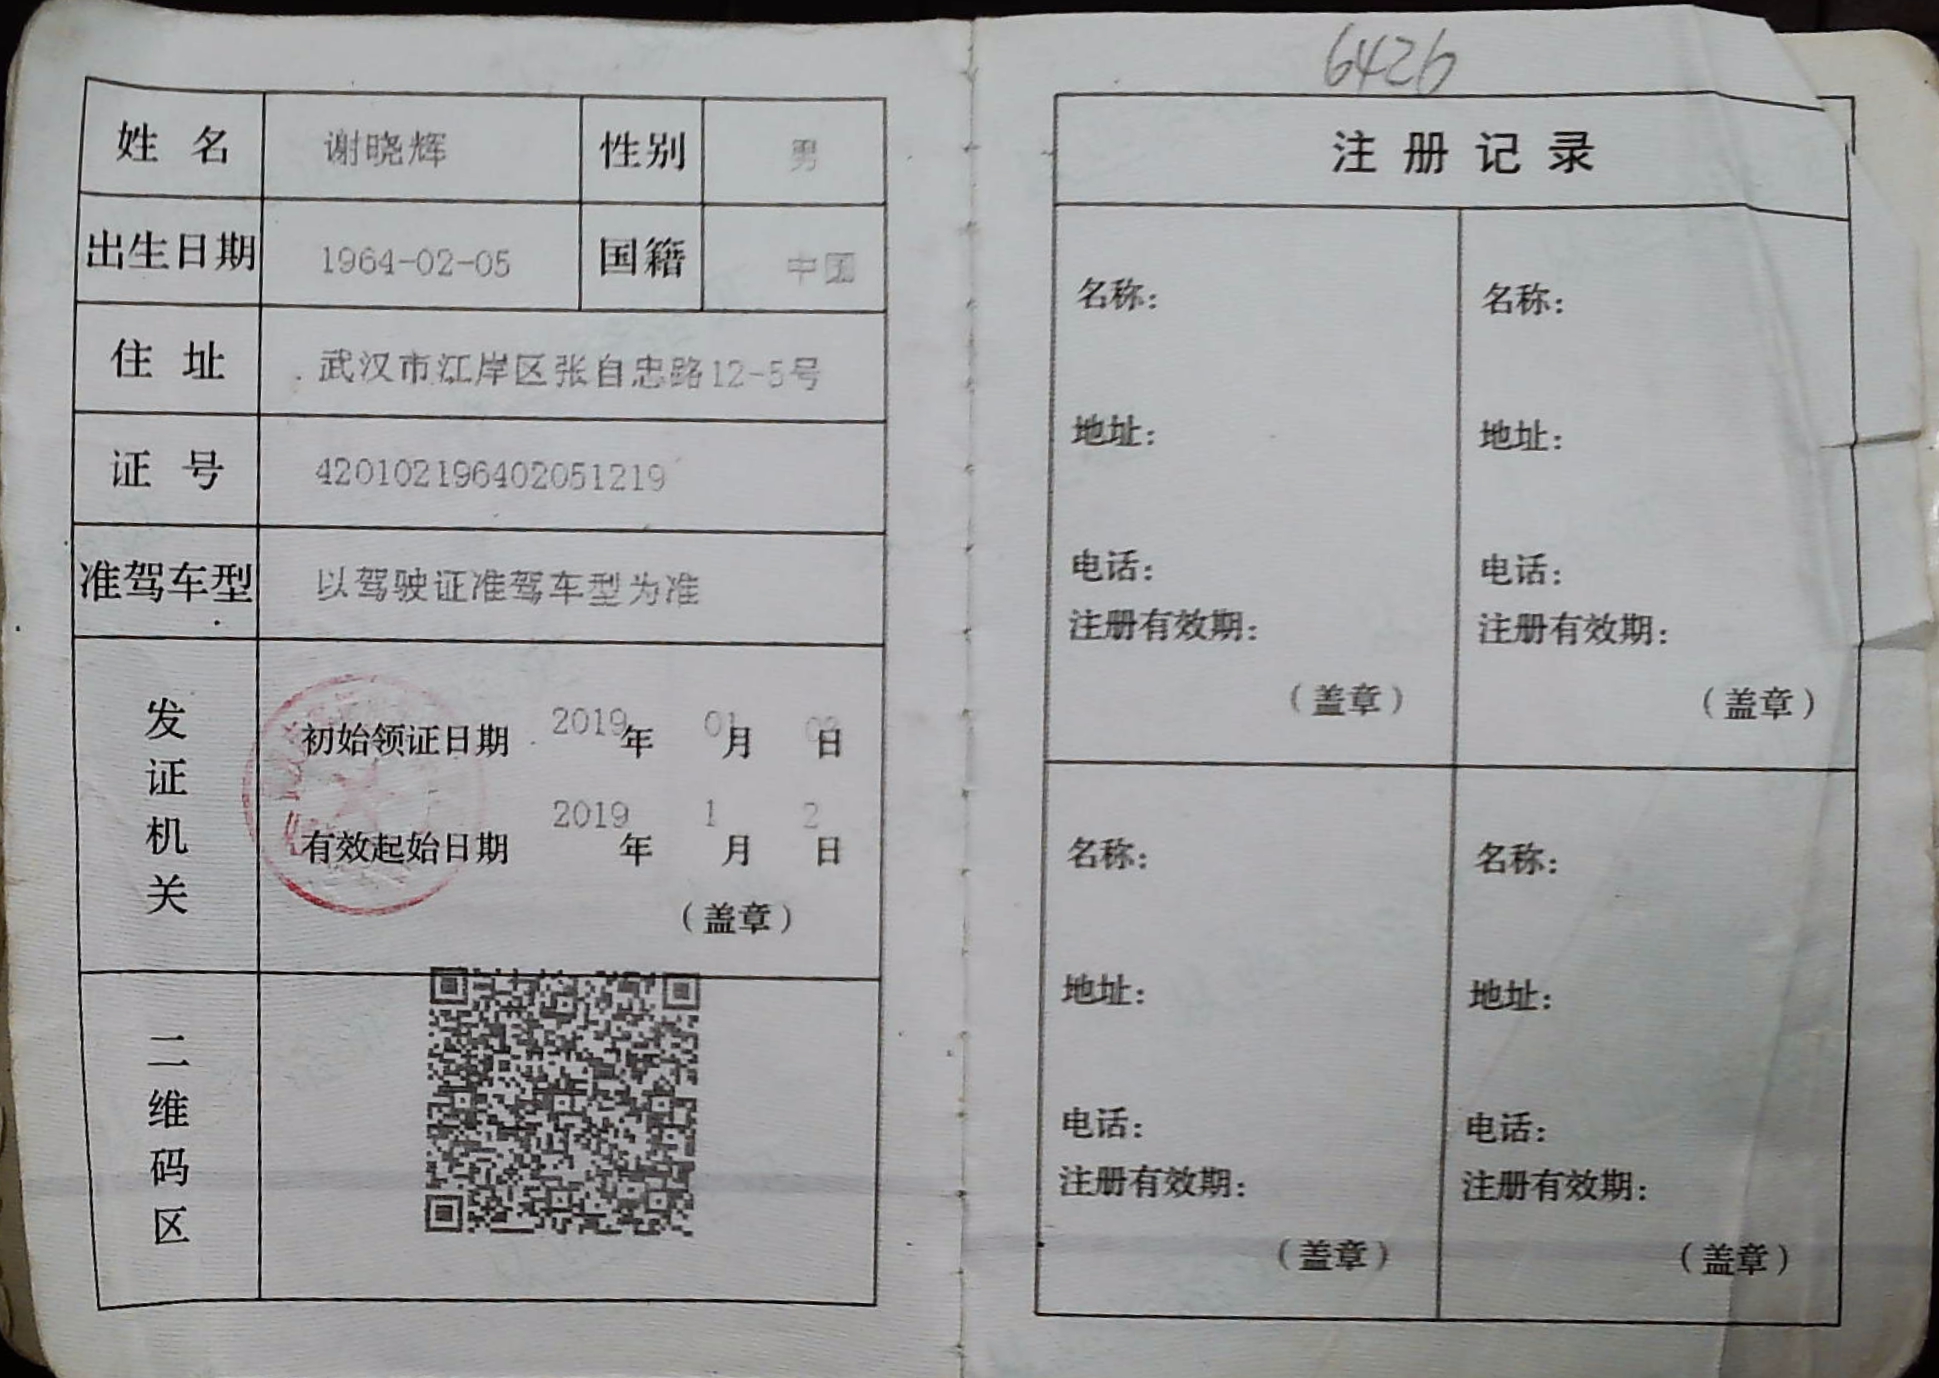 姓名 谢晓辉 性别 男
出生日期 1964-02-05 国籍 中国
住址 武汉市江岸区张自忠路12-5号
证号 420102196402051219
准驾车型 以驾驶证准驾车型为准
发证机关
初始领证日期 2019年 01月 02日
有效起始日期 2019年 1月 2日
（盖章）
二维码区
6426
注册记录
名称：
地址：
电话：
注册有效期：
（盖章）
名称：
地址：
电话：
注册有效期：
（盖章）
名称：
地址：
电话：
注册有效期：
（盖章）
名称：
地址：
电话：
注册有效期：
（盖章）